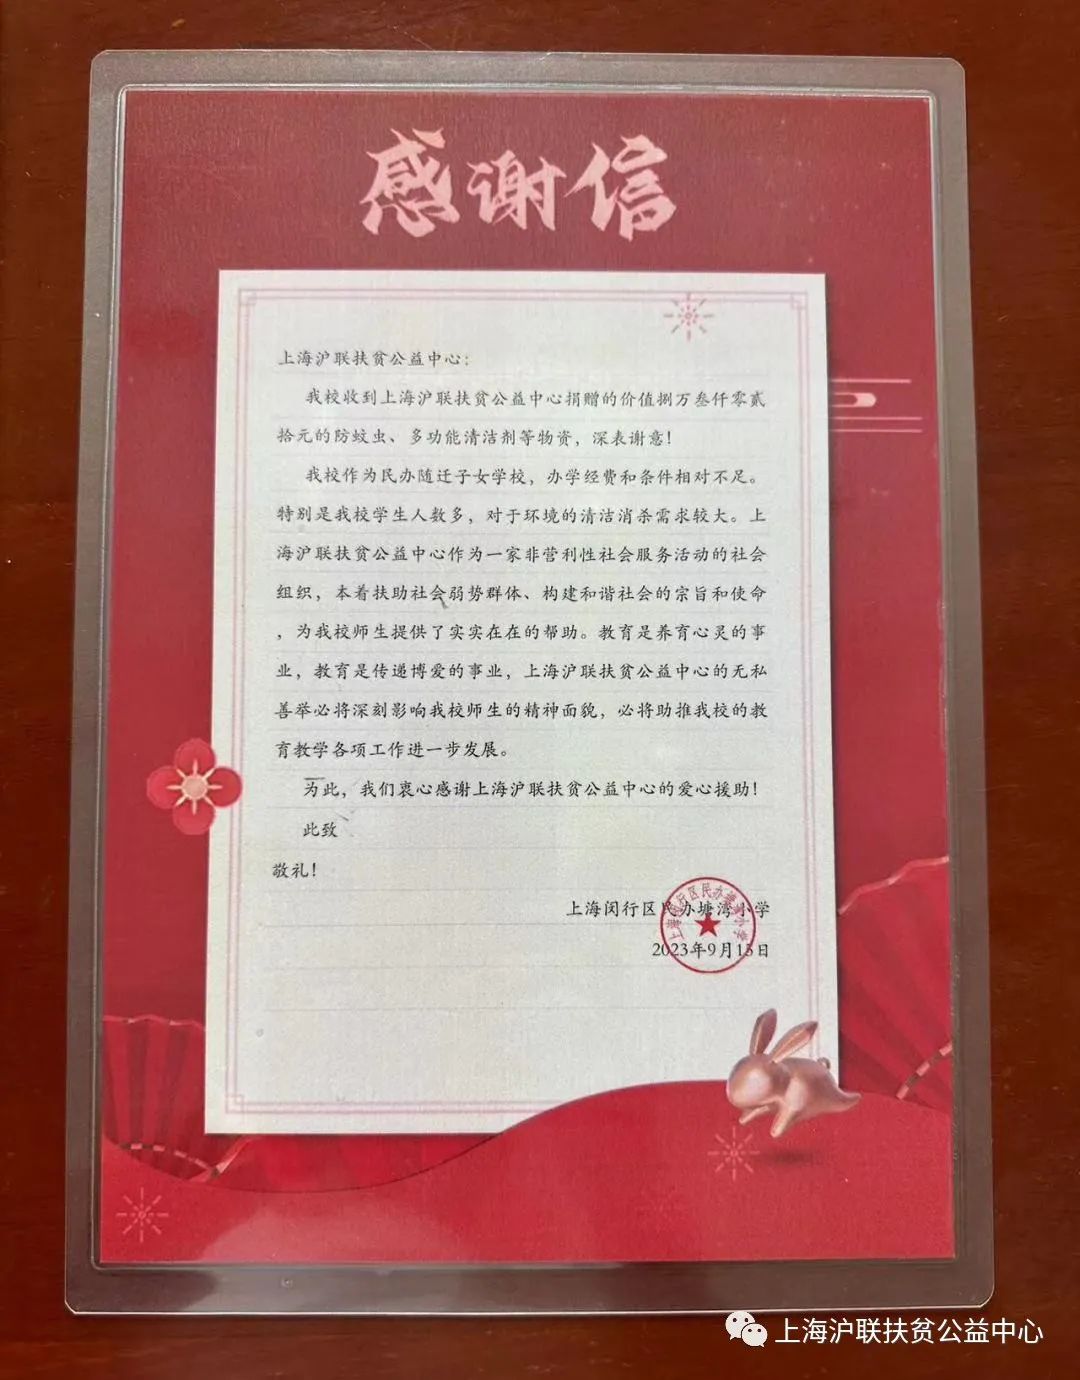 感谢信
上海沪联扶贫公益中心：
我校收到上海沪联扶贫公益中心捐赠的价值捌万叁仟零贰
拾元的防蚊虫、多功能清洁剂等物资，深表谢意！
我校作为民办随迁子女学校，办学经费和条件相对不足。
特别是我校学生人数多，对于环境的清洁消杀需求较大。上
海沪联扶贫公益中心作为一家非营利性社会服务活动的社会
组织，本着扶助社会弱势群体、构建和谐社会的宗旨和使命
，为我校师生提供了实实在在的帮助。教育是养育心灵的事
业，教育是传递博爱的事业，上海沪联扶贫公益中心的无私
善举必将深刻影响我校师生的精神面貌，必将助推我校的教
育教学各项工作进一步发展。
为此，我们衷心感谢上海沪联扶贫公益中心的爱心援助！
此致
敬礼！
上海闵行区民办塘湾小学
2023年9月15日
上海闵行区民办塘湾小学
上海沪联扶贫公益中心